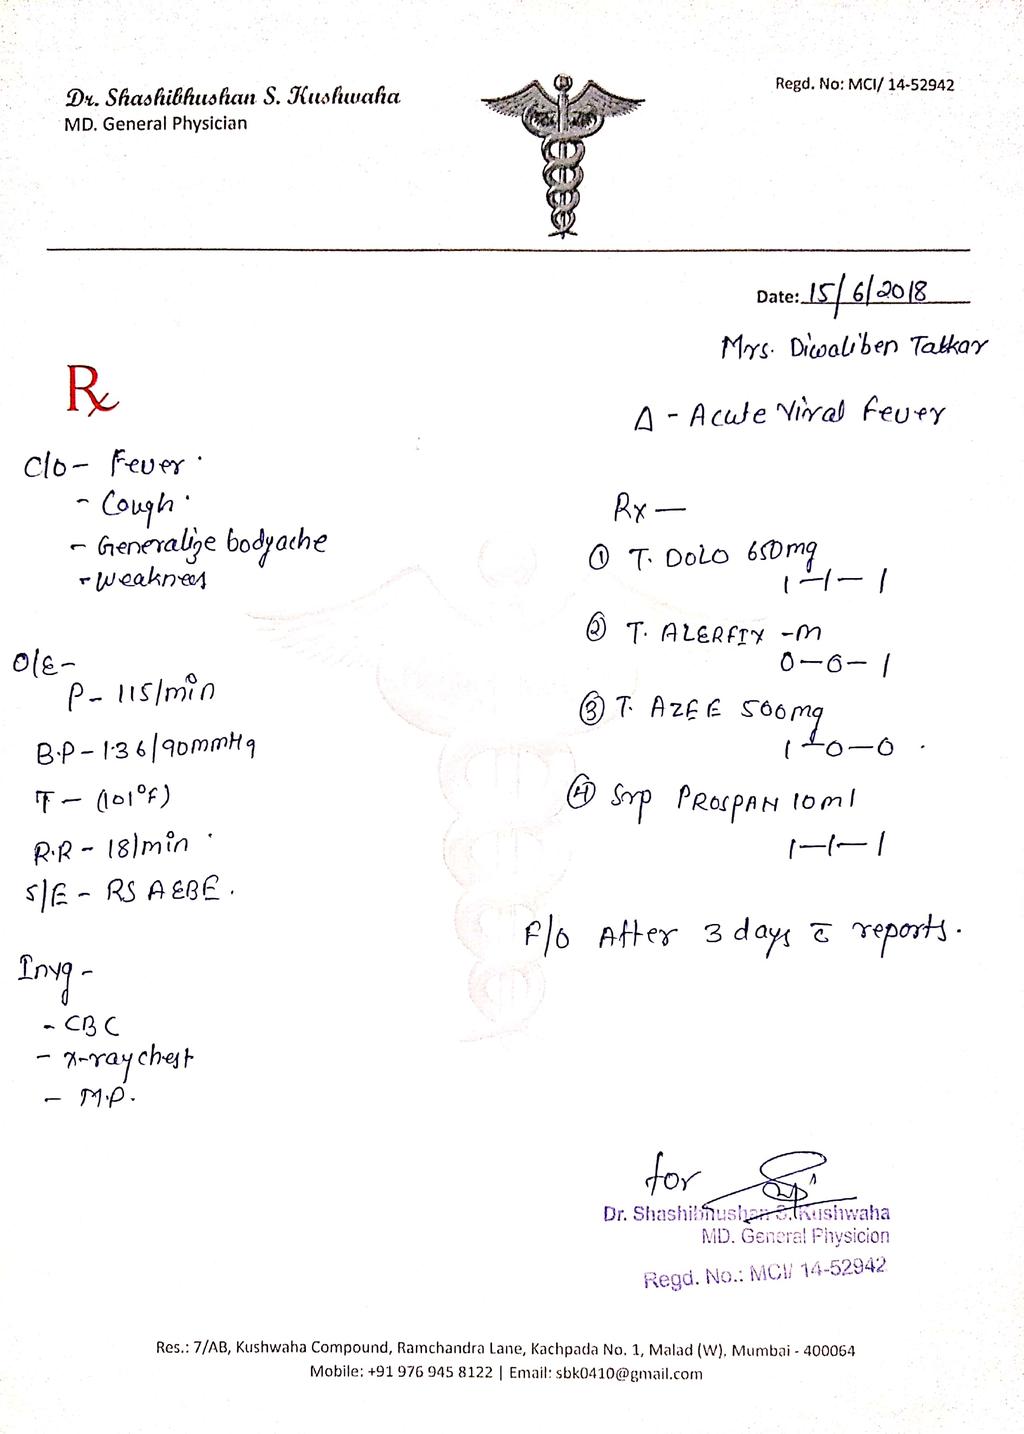 Dr. Shashibhushan S. Kushwaha
MD. General Physician
Regd. No: MCI/ 14-52942
Date: 15/6/2018
Mrs. Diwaliben Tatkar
Rx
Δ - Acute Viral Fever
C/o - Fever
- Cough
- Generalize bodyache
- Weakness
O/E -
P - 115/min
B.P - 136/90mmHg
T - (101°F)
R.R - 18/min
S/E - RS AEBE.
Invg -
- CBC
- X-ray chest
- M.P.
Rx —
① T. DOLO 650mg
1-1-1
② T. ALERFIX -M
0-0-1
③ T. AZEE 500mg
1-0-0
④ Syp PROSPAN 10ml
1-1-1
F/O After 3 days c̄ reports.
for
Dr. Shashibhushan S. Kushwaha
MD. General Physicion
Regd. No.: MCI/ 14-52942
Res.: 7/AB, Kushwaha Compound, Ramchandra Lane, Kachpada No. 1, Malad (W), Mumbai - 400064
Mobile: +91 976 945 8122 | Email: sbk0410@gmail.com